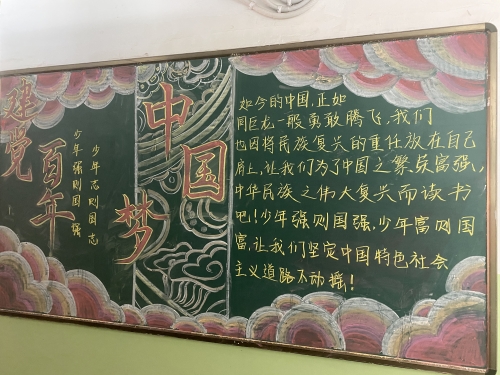 建党
百年
少年强则国强
少年志则国志
中国
梦
如今的中国,正如
同巨龙一般勇敢腾飞,我们
也因将民族复兴的重任放在自己
肩上,让我们为了中国之繁荣富强,
中华民族之伟大复兴而读书
吧!少年强则国强,少年富则国
富,让我们坚定中国特色社会
主义道路不动摇!